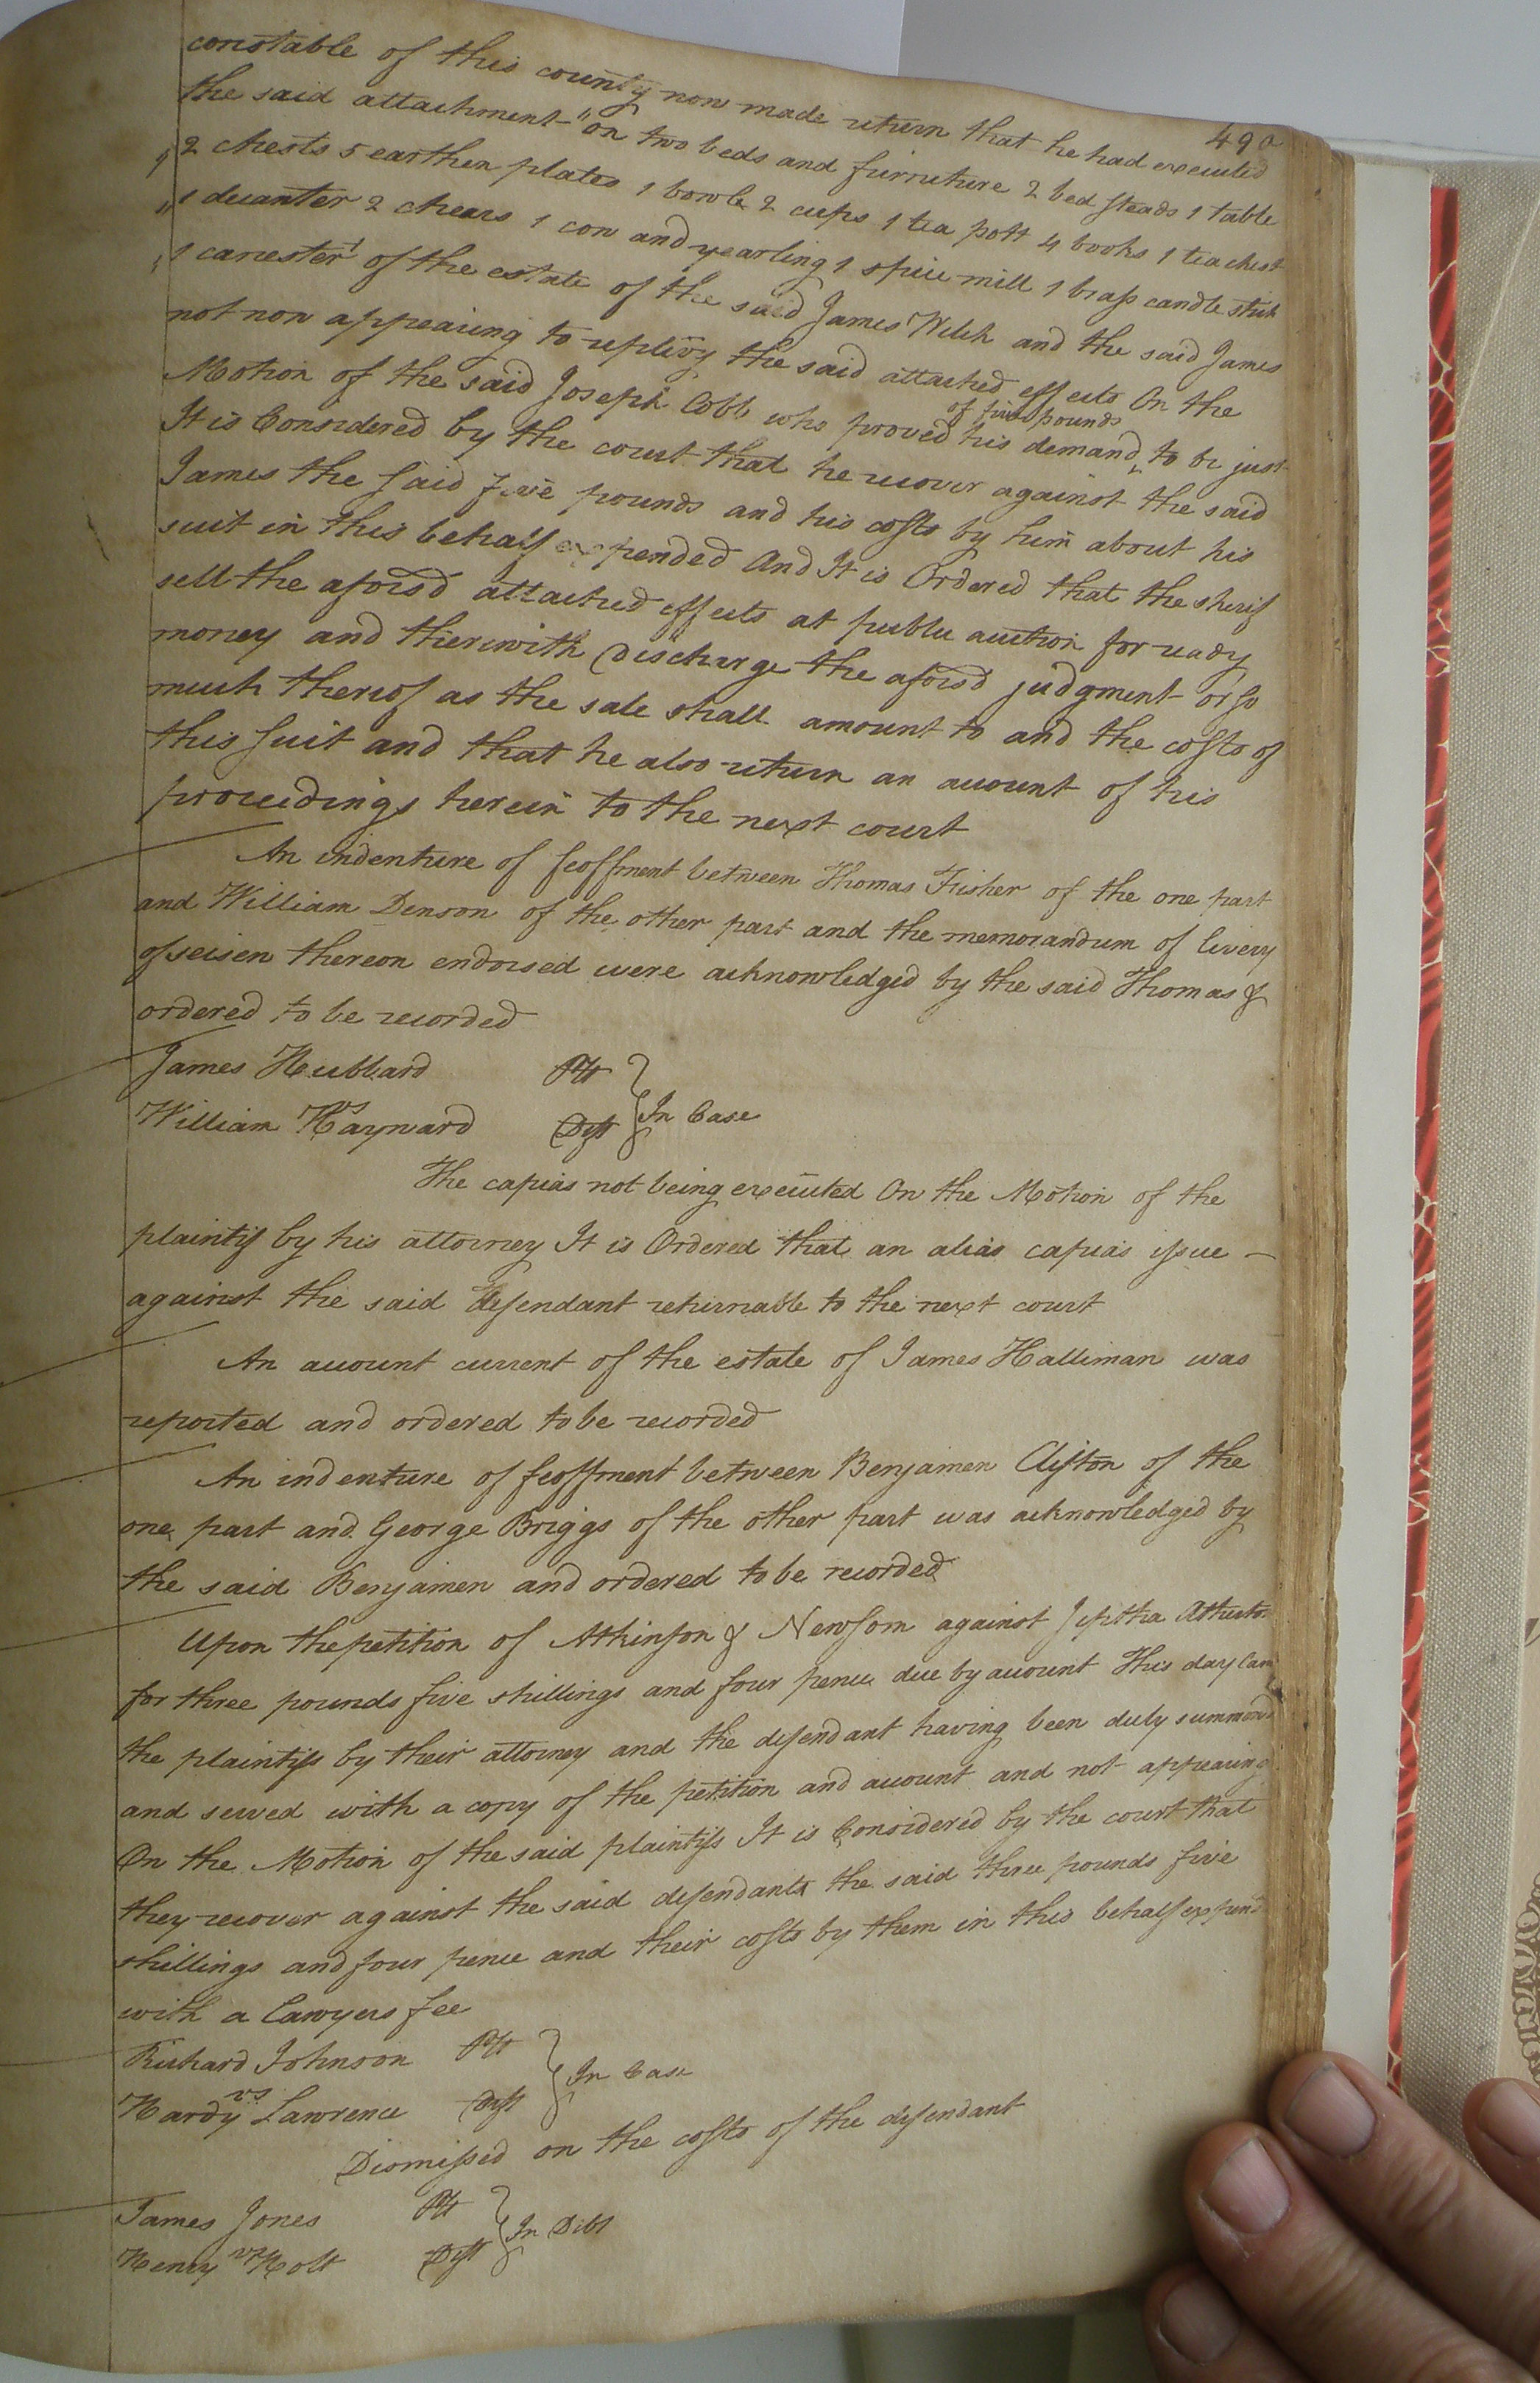 490
constable of this county now made return that he had executed
the said attachment "on two beds and furniture 2 bed steads 1 table
"2 chests 5 earthen plates 1 bowle 2 cups 1 tea pott 4 books 1 tea chest
"1 decanter 2 chears 1 cow and yearling 1 spice mill 1 brass candle stick
"1 canester" of the estate of the said James Welch and the said James
not now appearing to replevy the said attached effects On the
Motion of the said Joseph Cobb who proved his demand of five pounds to be just
It is Considered by the court that he recover against the said
James the said five pounds and his costs by him about his
suit in this behalf expended And It is Ordered that the sherif
sell the aforsd attached effects at public auction for ready
money and thierwith discharge the aforsd judgment or so
much therof as the sale shall amount to and the costs of
this suit and that he also return an account of his
proceedings herein to the next court
An indenture of feoffment between Thomas Fisher of the one part
and William Denson of the other part and the memorandum of livery
of seisen thereon endorsed were acknowledged by the said Thomas &
ordered to be recorded
James Hubbard Plt
vs In Case
William Haynard Deft
The capias not being executed On the Motion of the
plaintif by his attorney It is Ordered that an alias capias issue
against the said defendant returnable to the next court
An account current of the estate of James Halliman was
reported and ordered to be recorded
An indenture of feoffment between Benjamen Clifton of the
one part and George Briggs of the other part was acknowledged by
the said Benjamen and ordered to be recorded
Upon the petition of Atkinson & Newsom against Jeptha
for three pounds five shillings and four pence due by account This day Came
the plaintifs by their attorney and the defendant having been duly summond
and served with a copy of the petition and account and not appearing
On the Motion of the said plaintifs It is Considered by the court that
they recover against the said defendant the said three pounds five
shillings and four pence and their costs by them in this behalf expend
with a Lawyers fee
Richard Johnson Plt
vs In Case
Hardy Lawrence Deft
Dismissed on the costs of the defendant
James Jones Plt
vs In Debt
Henry Holt Deft